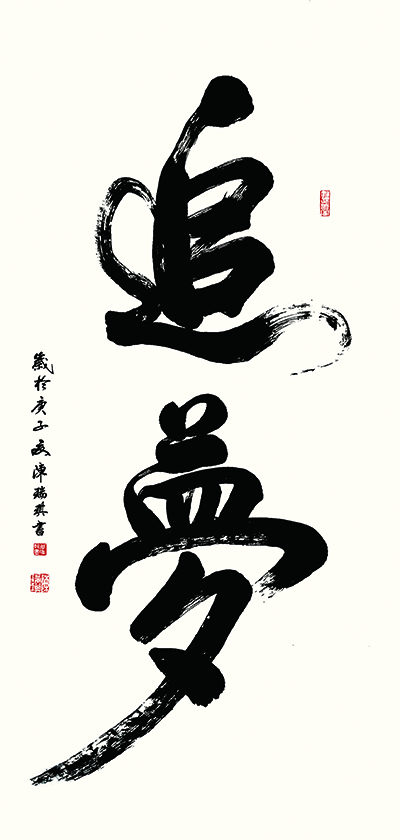 追夢
歲於庚子夏陳瑞琪書